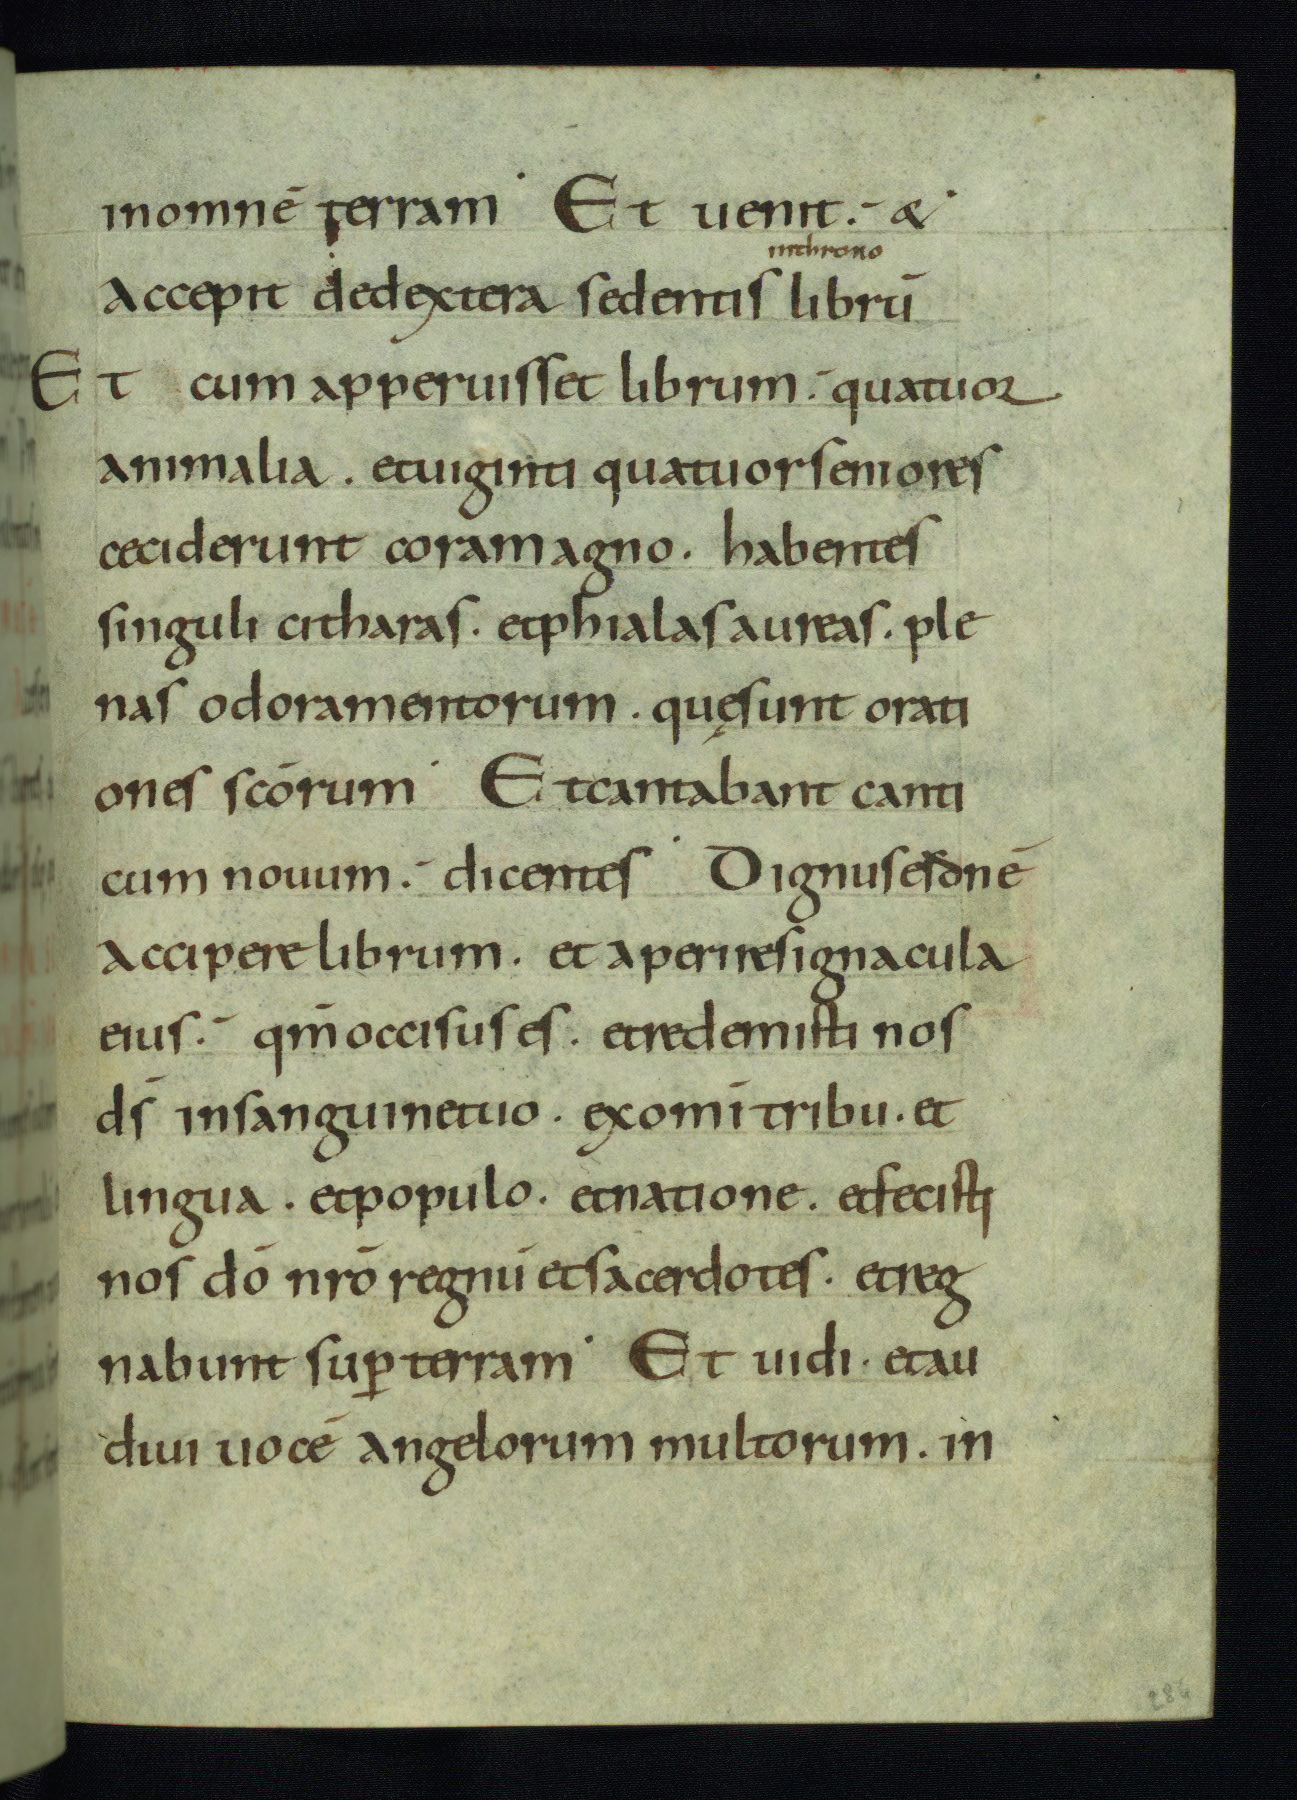 inomnē terram · Et uenit .- &
inthrono
Accepit dedextera sedentis librū
Et cum apperuisset librum .- quatuor
animalia . etuiginti quatuorseniores
ceciderunt coramagno . habentes
singuli citharas . etphialasaureas . ple
nas odoramentorum . quęsunt orati
ones scōrum · Etcantabant canti
cum nouum .- dicentes · Dignusesdnē
Accipere librum . et aperiresignacula
eius .- qm̄occisuses . etredemisti nos
ds̄ insanguinetuo . exomī tribu . et
lingua . etpopulo . etnatione . etfecisti
nos dō nrō regnū etsacerdotes . etreg
nabunt suꝑterram · Et uidi . etau
diui uocē angelorum multorum . in
286